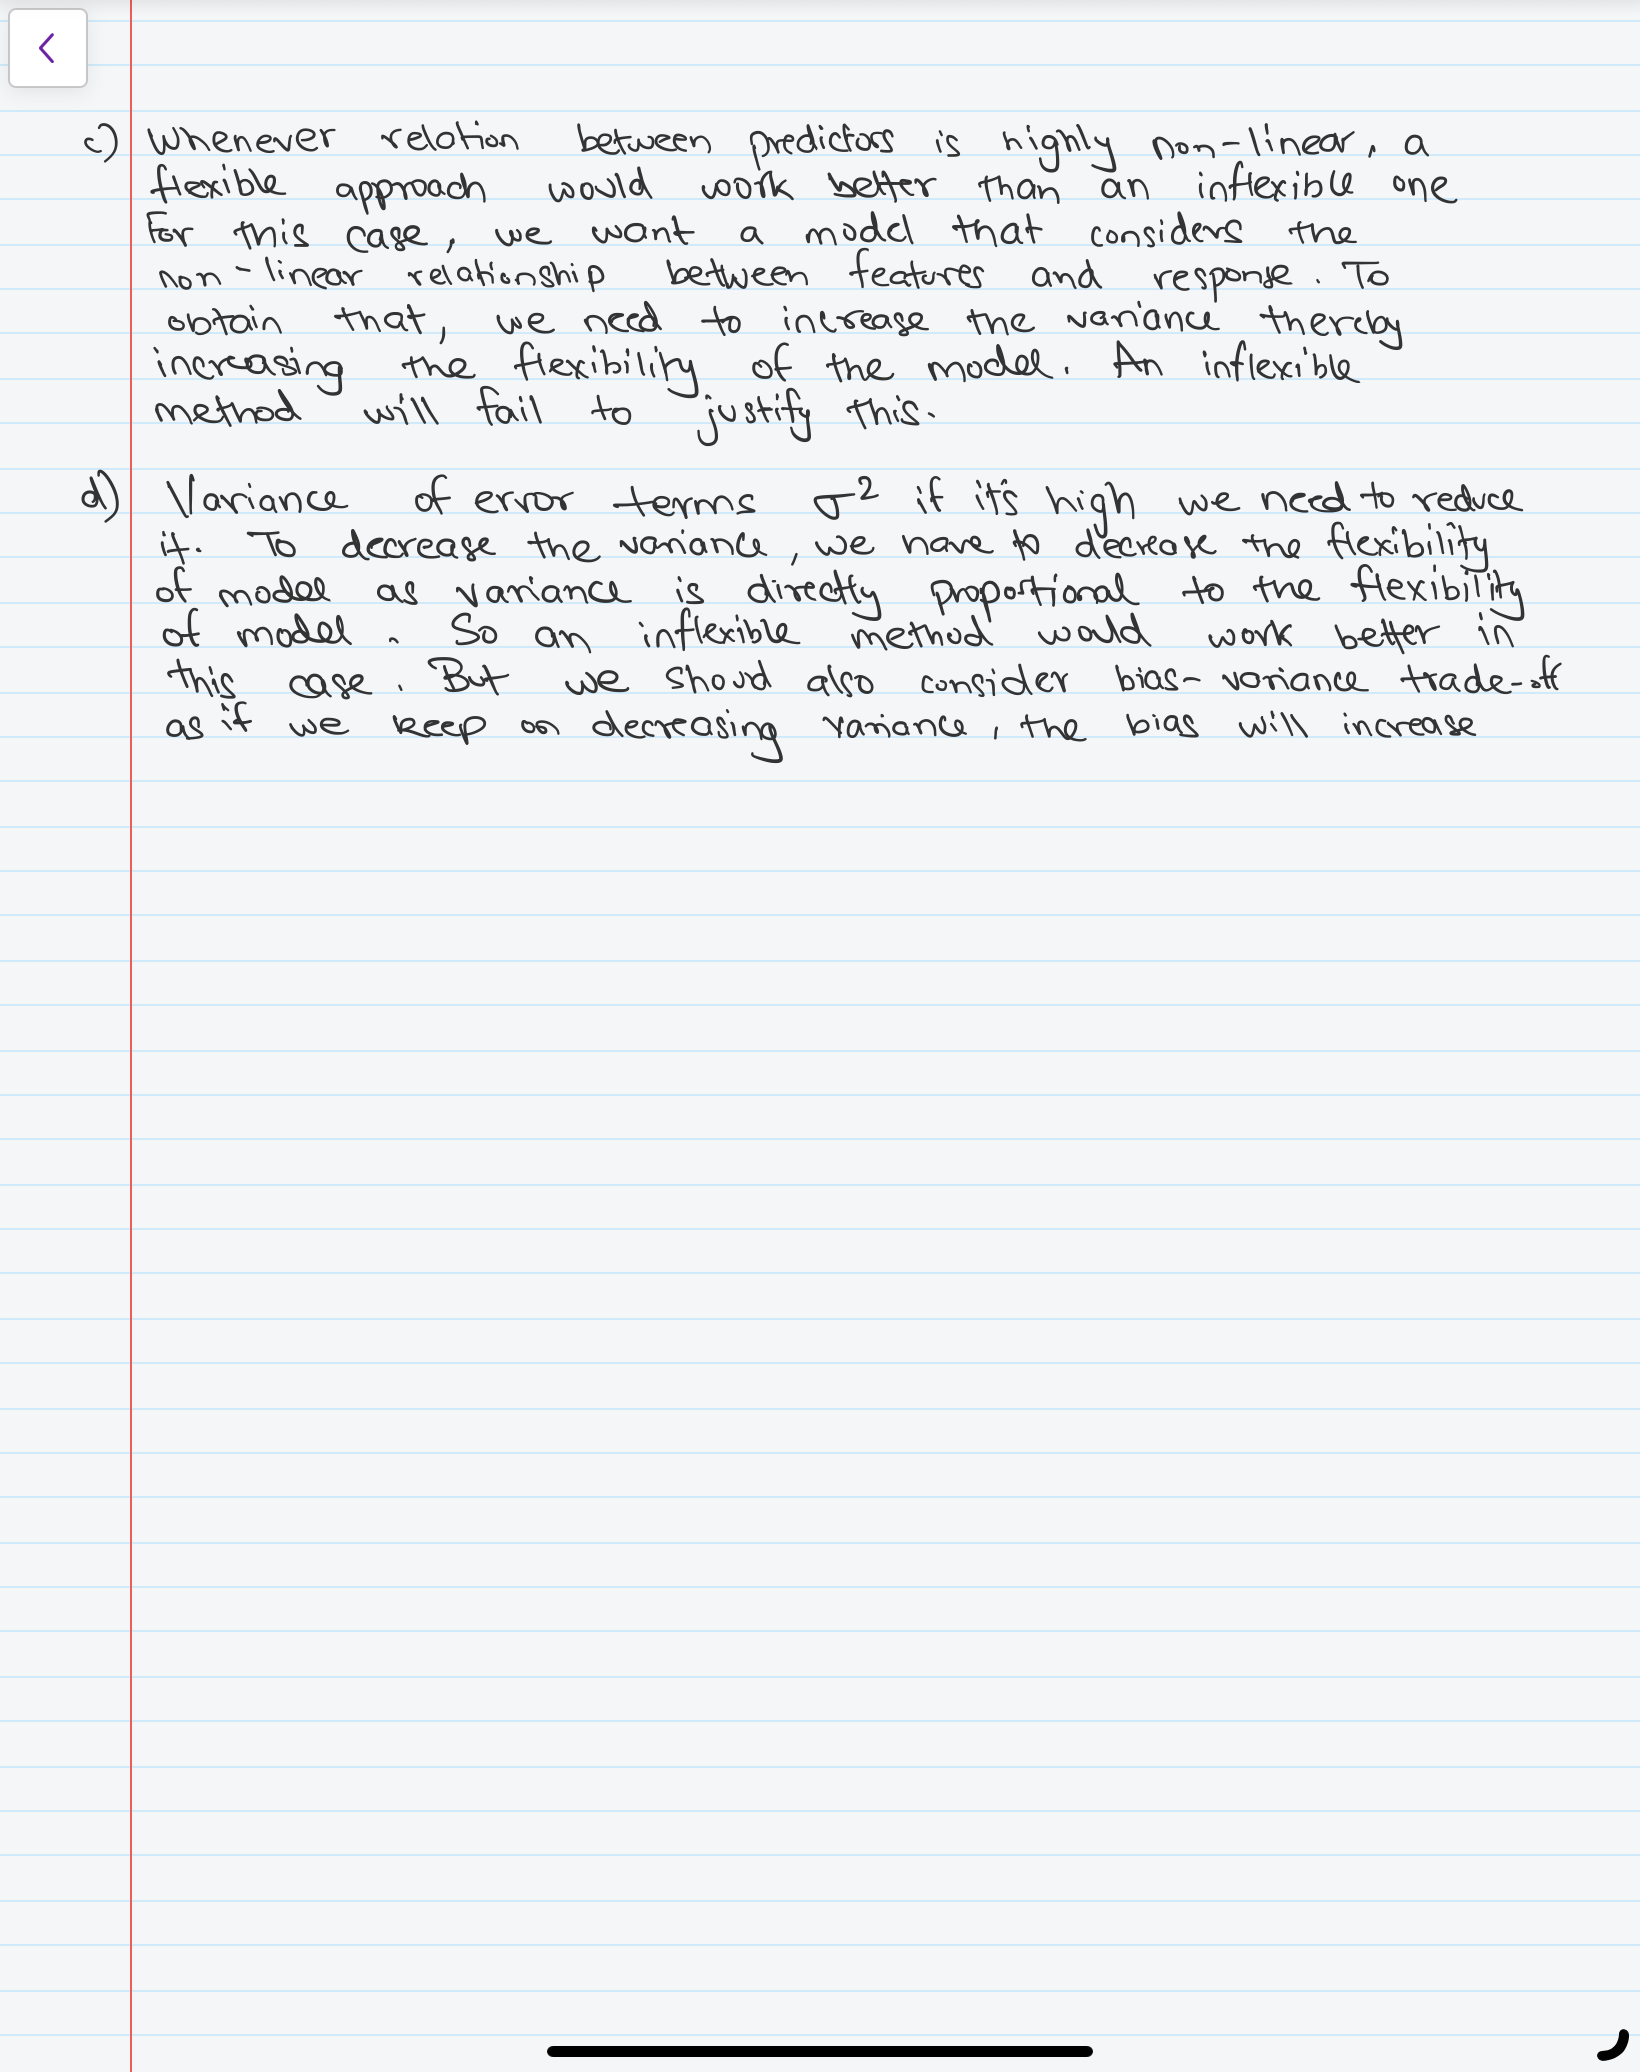 c) Whenever relation between predictors is highly non-linear, a
flexible approach would work better than an inflexible one
For this case, we want a model that considers the
non-linear relationship between features and response. To
obtain that, we need to increase the variance thereby
increasing the flexibility of the model. An inflexible
method will fail to justify this.
d) Variance of error terms σ² if it's high we need to reduce
it. To decrease the variance, we have to decrease the flexibility
of model as variance is directly proportional to the flexibility
of model. So an inflexible method would work better in
this case. But we should also consider bias-variance trade-off
as if we keep on decreasing variance, the bias will increase